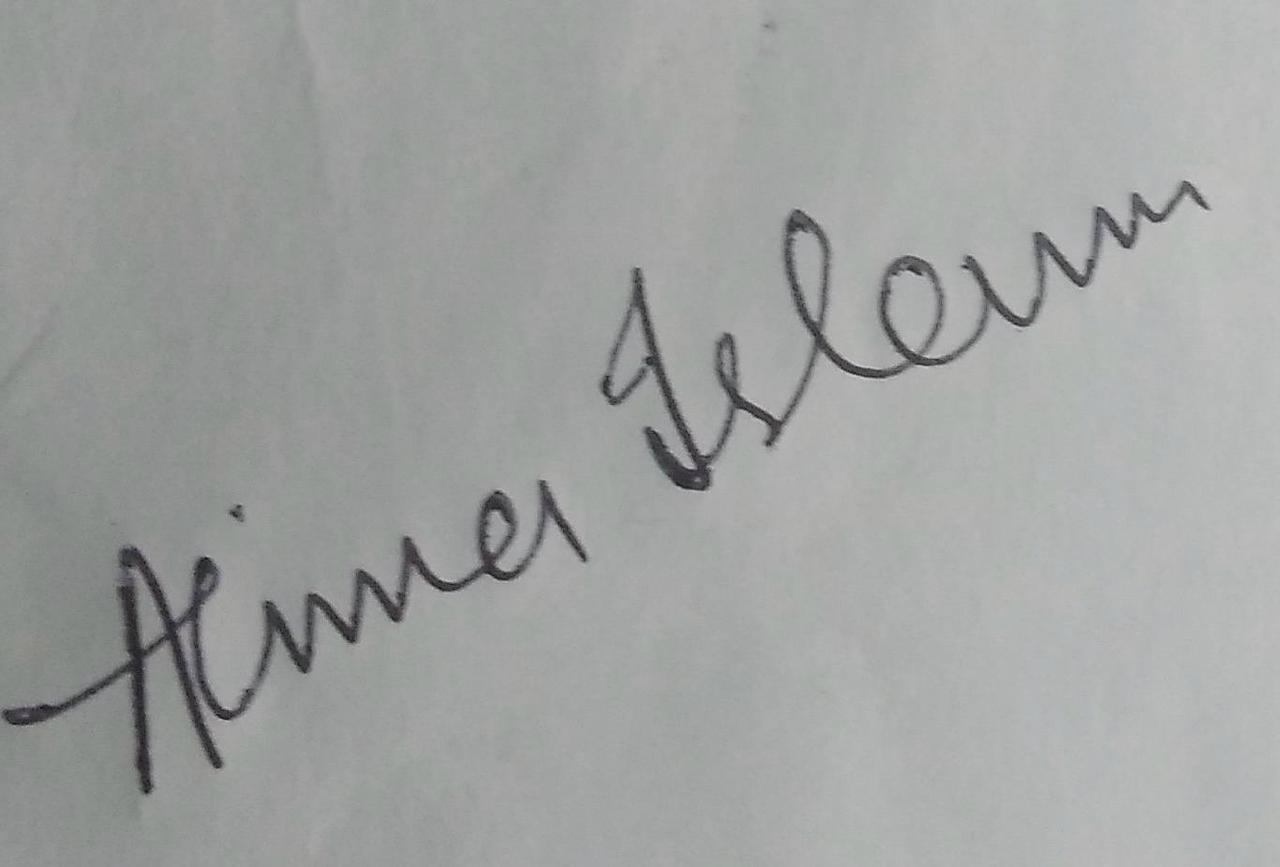 Aima Islam